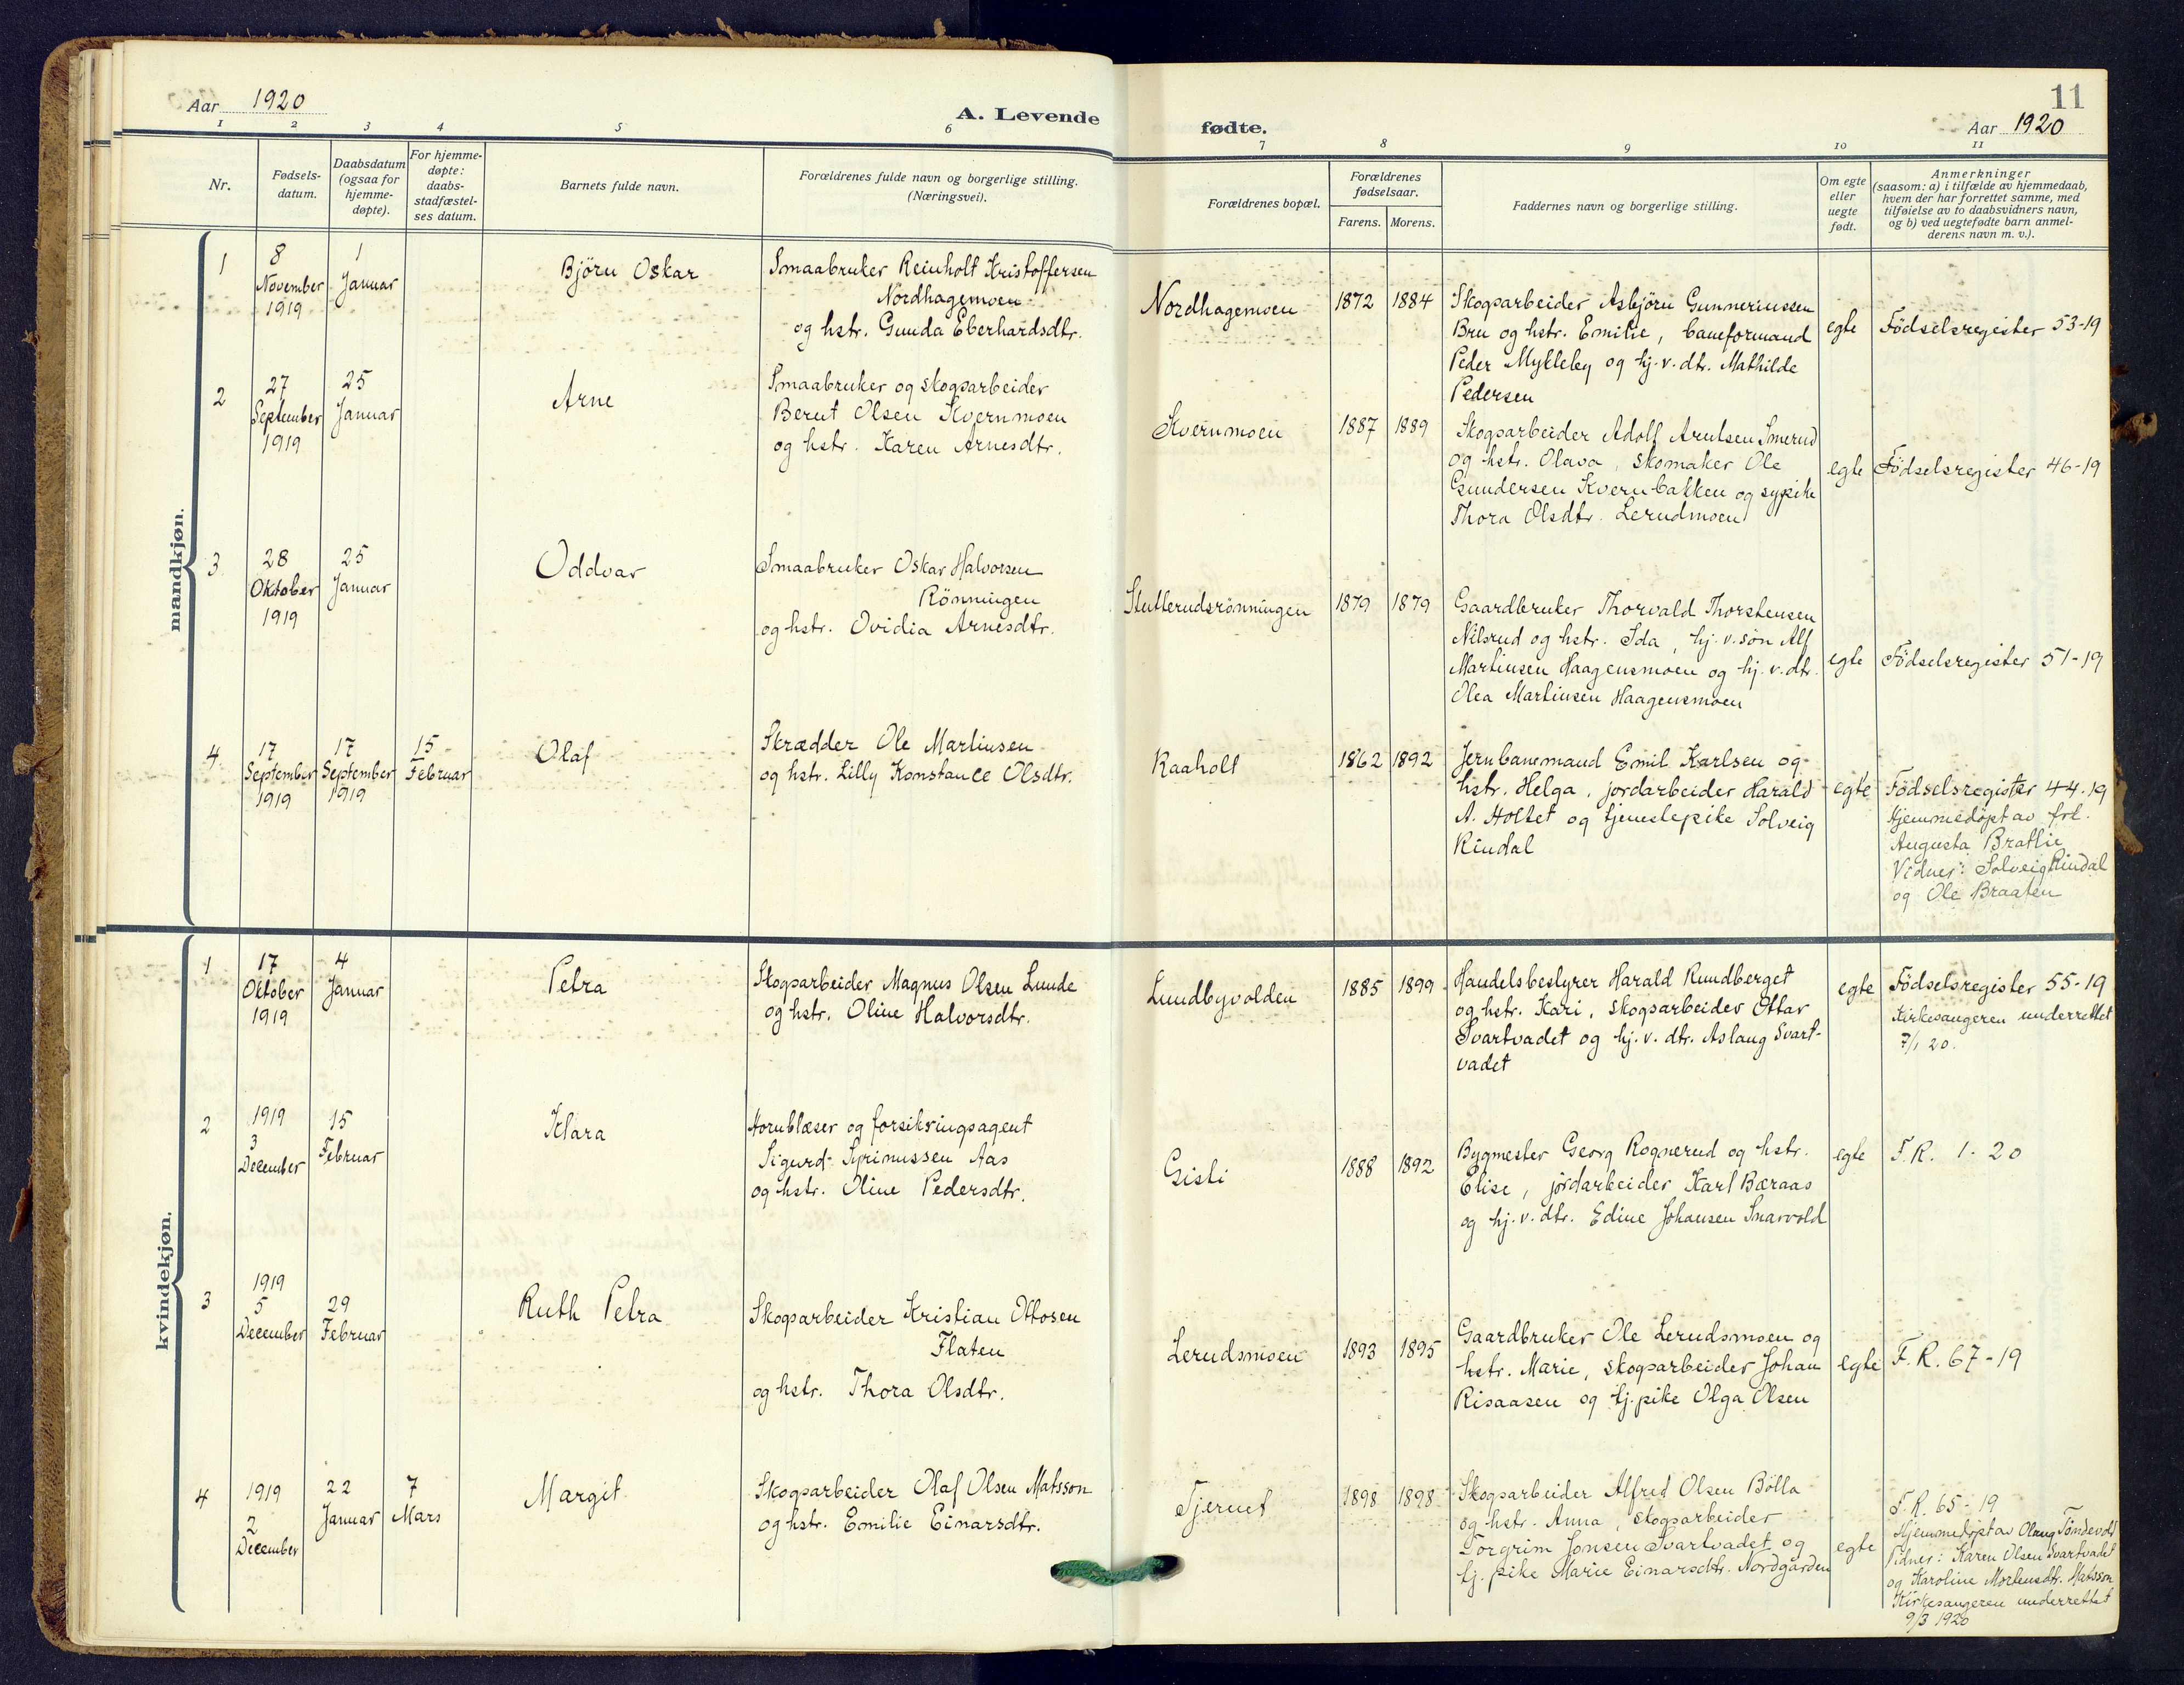 Aar 1920
A. Levende
fødte.
Aar 1920
11
1 2 3 4 5 6 7 8 9 10 11
Nr.
Fødsels-
datum.
Daabsdatum
(ogsaa for
hjemme-
døpte).
For hjemme-
døpte:
daabs-
stadfæstel-
ses datum.
Barnets fulde navn.
Forældrenes fulde navn og borgerlige stilling.
(Næringsvei).
Forældrenes bopæl.
Forældrenes
fødselsaar.
Farens. Morens.
Faddernes navn og borgerlige stilling.
Om egte
eller
uegte
født.
Anmerkninger
(saasom: a) i tilfælde av hjemmedaab,
hvem der har forrettet samme, med
tilføielse av to daabsvidners navn,
og b) ved uegtefødte barn anmel-
derens navn m. v.).
mandkjøn.
1
8
November
1919
1
Januar
Björn Oskar
Smaabruker Reinholt Kristoffersen
Nordhagemoen
og hstr. Gunda Eberhardsdtr.
Nordhagemoen
1872
1884
Skogsarbeider Asbjörn Gunneriussen
Bru og hstr. Emilie, baneformand
Peder Mykleby og hj. v. dtr. Mathilde
Pedersen
egte
Födselsregister 53-19
2
27
September
1919
25
Januar
Arne
Smaabruker og skogsarbeider
Bernt Olsen Kvernmoen
og hstr. Karen Arnesdtr.
Kvernmoen
1887
1889
Skogsarbeider Adolf Arntsen Smerud
og hstr. Olava, skomaker Ole
Gundersen Kvernbakken og sypike
Thora Olsdtr. Lerudmoen
egte
Födselsregister 46-19
3
28
Oktober
1919
25
Januar
Oddvar
Smaabruker Oskar Halvorsen
Rönningen
og hstr. Ovidia Arnesdtr.
Stutterudsrönningen
1879
1879
Gaardbruker Thorvald Thorstensen
Nilsrud og hstr. Ida, hj. v. sön Alf
Martinsen Haagensmoen og hj. v. dtr.
Olea Martinsen Haagensmoen
egte
Födselsregister 51-19
4
17
September
1919
17
September
1919
15
Februar
Olaf
Skrædder Ole Martinsen
og hstr. Lilly Konstance Olsdtr.
Raaholt
1862
1892
Jernbanemand Emil Karlsen og
hstr. Helga, jordarbeider Harald
A. Holtet og tjenestepike Solveig
Rindal
egte
Födselsregister 44-19
Hjemmedöpt av frk.
Augusta Bratlie
Vidner: Solveig Rindal
og Ole Braaten
kvindekjøn.
1
17
Oktober
1919
4
Januar
Petra
Skogsarbeider Magnus Olsen Lunde
og hstr. Oline Halvorsdtr.
Lundbyvolden
1885
1899
Handelsbestyrer Harald Rundberget
og hstr. Kari, skogsarbeider Ottar
Svartvadet og hj. v. dtr. Aslaug Svart-
vadet
egte
Födselsregister 55-19
Kirkesangeren underrettet
7/1 20.
2
1919
3
December
15
Februar
Klara
Hornblæser og forsikringsagent
Sigurd Syrinussen Aas
og hstr. Oline Pedersdtr.
Gisti
1888
1892
Bygmester Georg Rognerud og hstr.
Elise, jordarbeider Karl Bæraas
og hj. v. dtr. Edine Johansen Snarvold
egte
F. R. 1-20
3
1919
5
December
29
Februar
Ruth Petra
Skogsarbeider Kristian Ottosen
Flaten
og hstr. Thora Olsdtr.
Lerudsmoen
1893
1895
Gaardbruker Ole Lerudsmoen og
hstr. Marie, skogsarbeider Johan
Risaasen og tj. pike Olga Olsen
egte
F. R. 67-19
4
1919
2
December
22
Januar
7
Mars
Margit
Skogsarbeider Olaf Olsen Matsson
og hstr. Emilie Einarsdtr.
Tjernet
1898
1898
Skogsarbeider Alfred Olsen Bölla
og hstr. Anna, skogsarbeider
Torgrim Jonsen Svartvadet og
tj. pike Marie Einarsdtr. Nordgården
egte
F. R. 65-19
Hjemmedöpt av Olaug Töndevold
Vidner: Karen Olsen Svartvadet
og Karoline Mortensdtr. Matsson
Kirkesangeren underrettet
9/3 1920